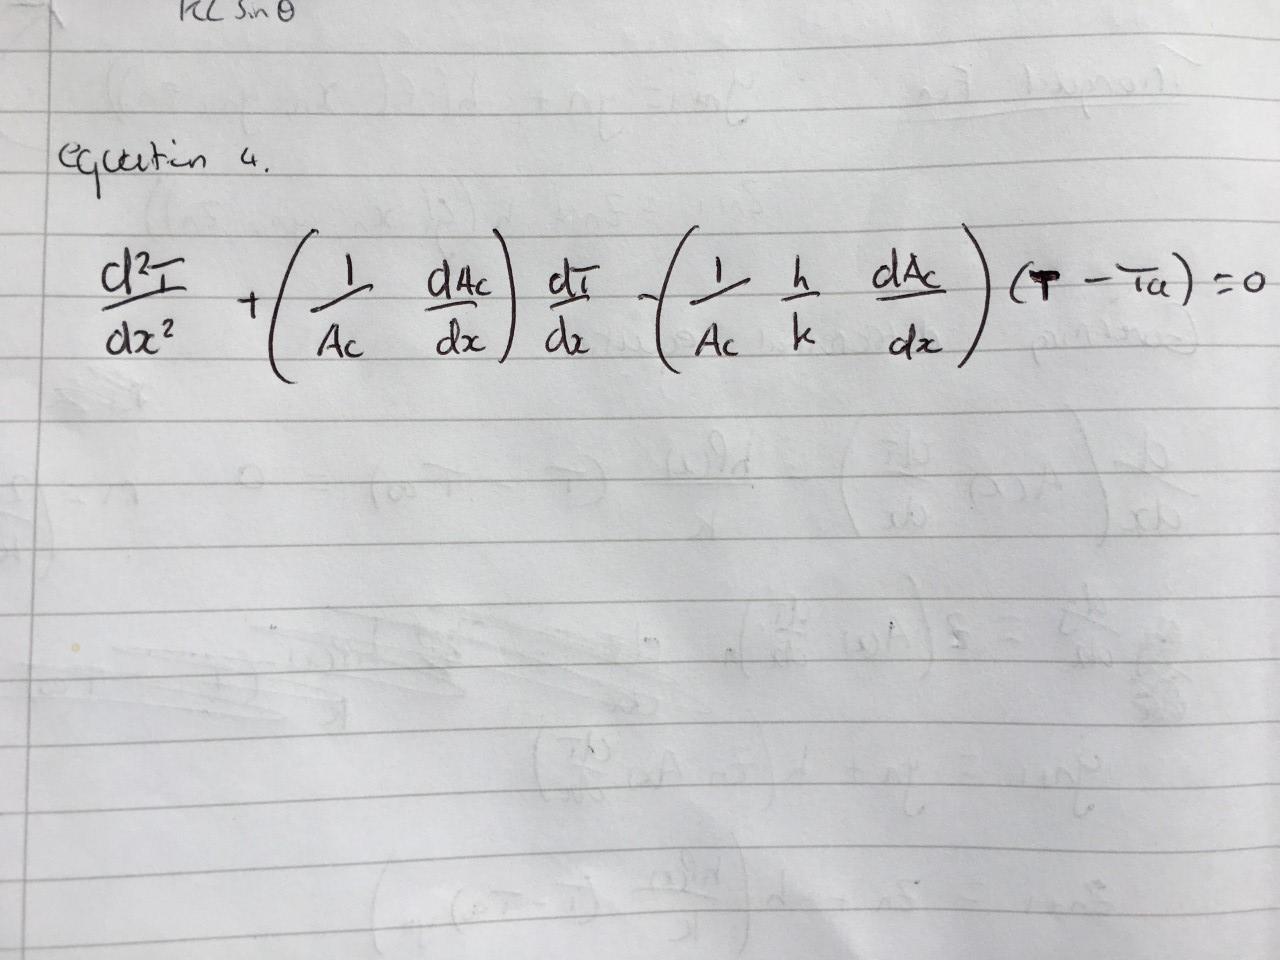 KL Sin θ
equation 4.
d²T/dx² + (1/Ac dAc/dx) dT/dx - (1/Ac h/k dAc/dx) (T - Ta) = 0